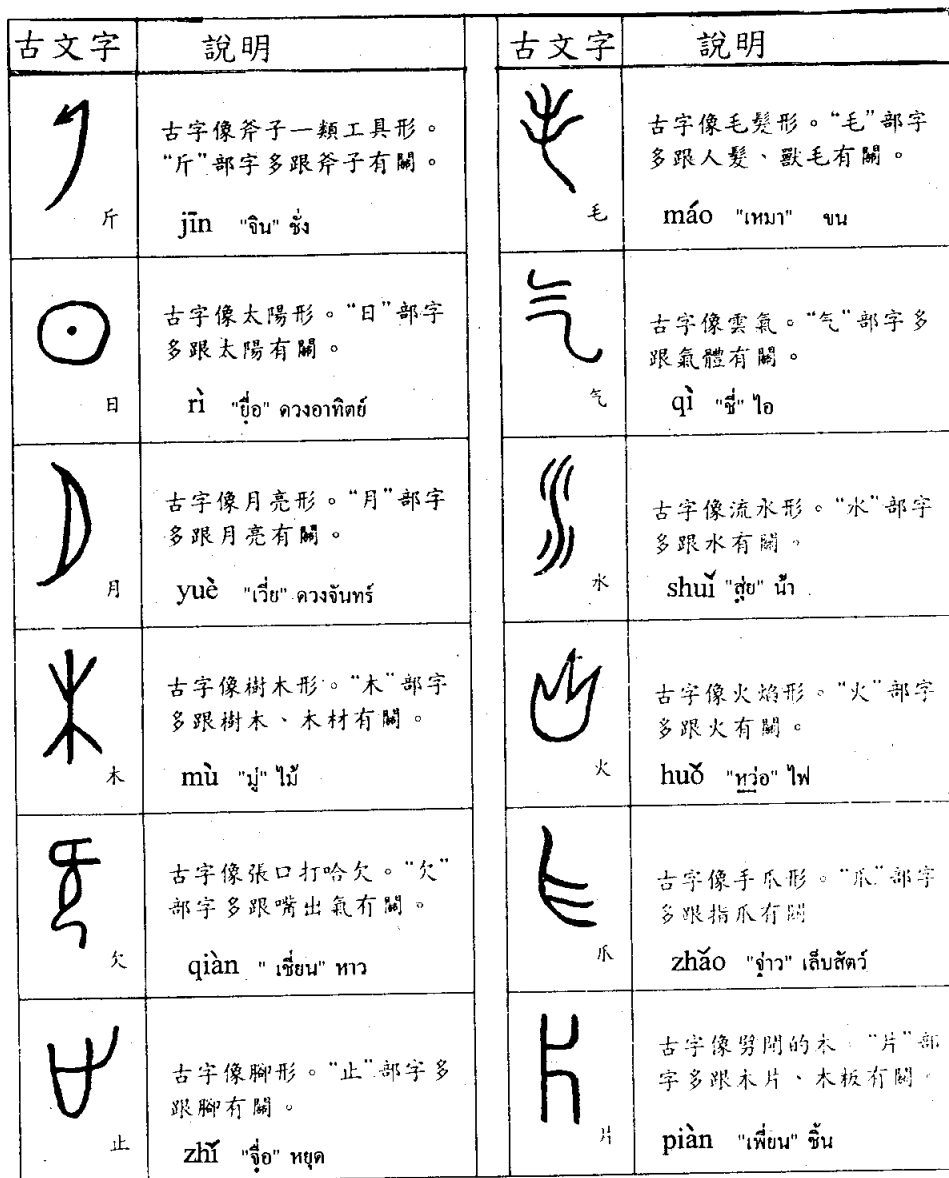 古文字 說明
古字像斧子一類工具形。
“斤”部字多跟斧子有關。
斤
jīn "จิน" ชั่ง
古字像太陽形。“日”部字
多跟太陽有關。
日
rì "ยื่อ" ดวงอาทิตย์
古字像月亮形。“月”部字
多跟月亮有關。
月
yuè "เวี่ย" ดวงจันทร์
古字像樹木形。“木”部字
多跟樹木、木材有關。
木
mù "มู่" ไม้
古字像張口打哈欠。“欠”
部字多跟嘴出氣有關。
欠
qiàn "เชี่ยน" หาว
古字像腳形。“止”部字多
跟腳有關。
止
zhǐ "จื่อ" หยุด
古文字 說明
古字像毛髮形。“毛”部字
多跟人髮、獸毛有關。
毛
máo "เหมา" ขน
古字像雲氣。“气”部字多
跟氣體有關。
气
qì "ชี่" ไอ
古字像流水形。“水”部字
多跟水有關。
水
shuǐ "สุ่ย" น้ำ
古字像火焰形。“火”部字
多跟火有關。
火
huǒ "หว่อ" ไฟ
古字像手爪形。“爪”部字
多跟指爪有關
爪
zhǎo "จ่าว" เล็บสัตว์
古字像劈開的木 “片”部
字多跟木片、木板有關。
片
piàn "เพี่ยน" ชิ้น